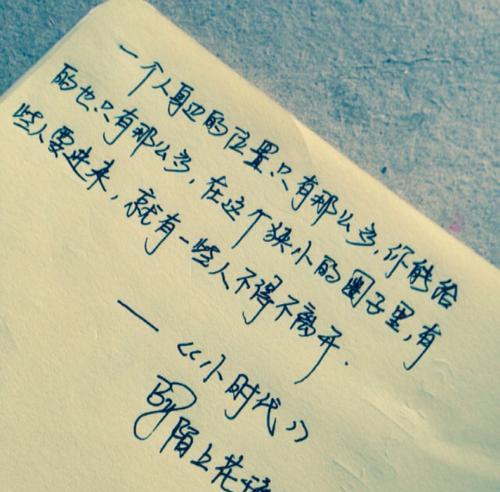 一个人身边的位置只有那么多,你能给
的也只有那么多,在这个狭小的圈子里,有
些人要进来,就有一些人不得不离开.
—《小时代》
By陌上花